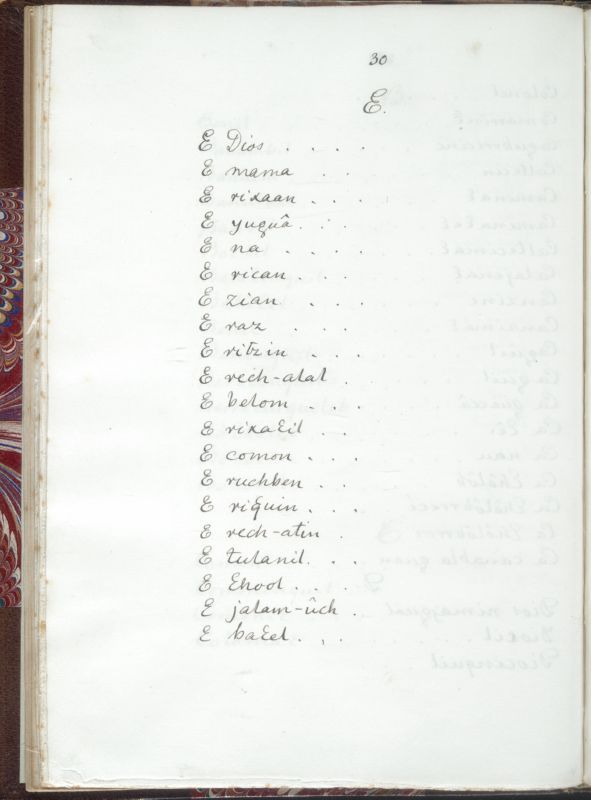 30
E.
E Dios . . . .
E mama . . .
E rixaan . . . .
E yuquâ . . .
E na . . . . .
E rican . . .
E zian . . . .
E raz . . .
E ritzin . . .
E rech-alal .
E belom . . .
E rixaƐil . .
E comon . . .
E ruchben . .
E riquin . . .
E rech-atin .
E tulanil . . .
E Ɛhool . . .
E jalam-ûch .
E baƐel . . .